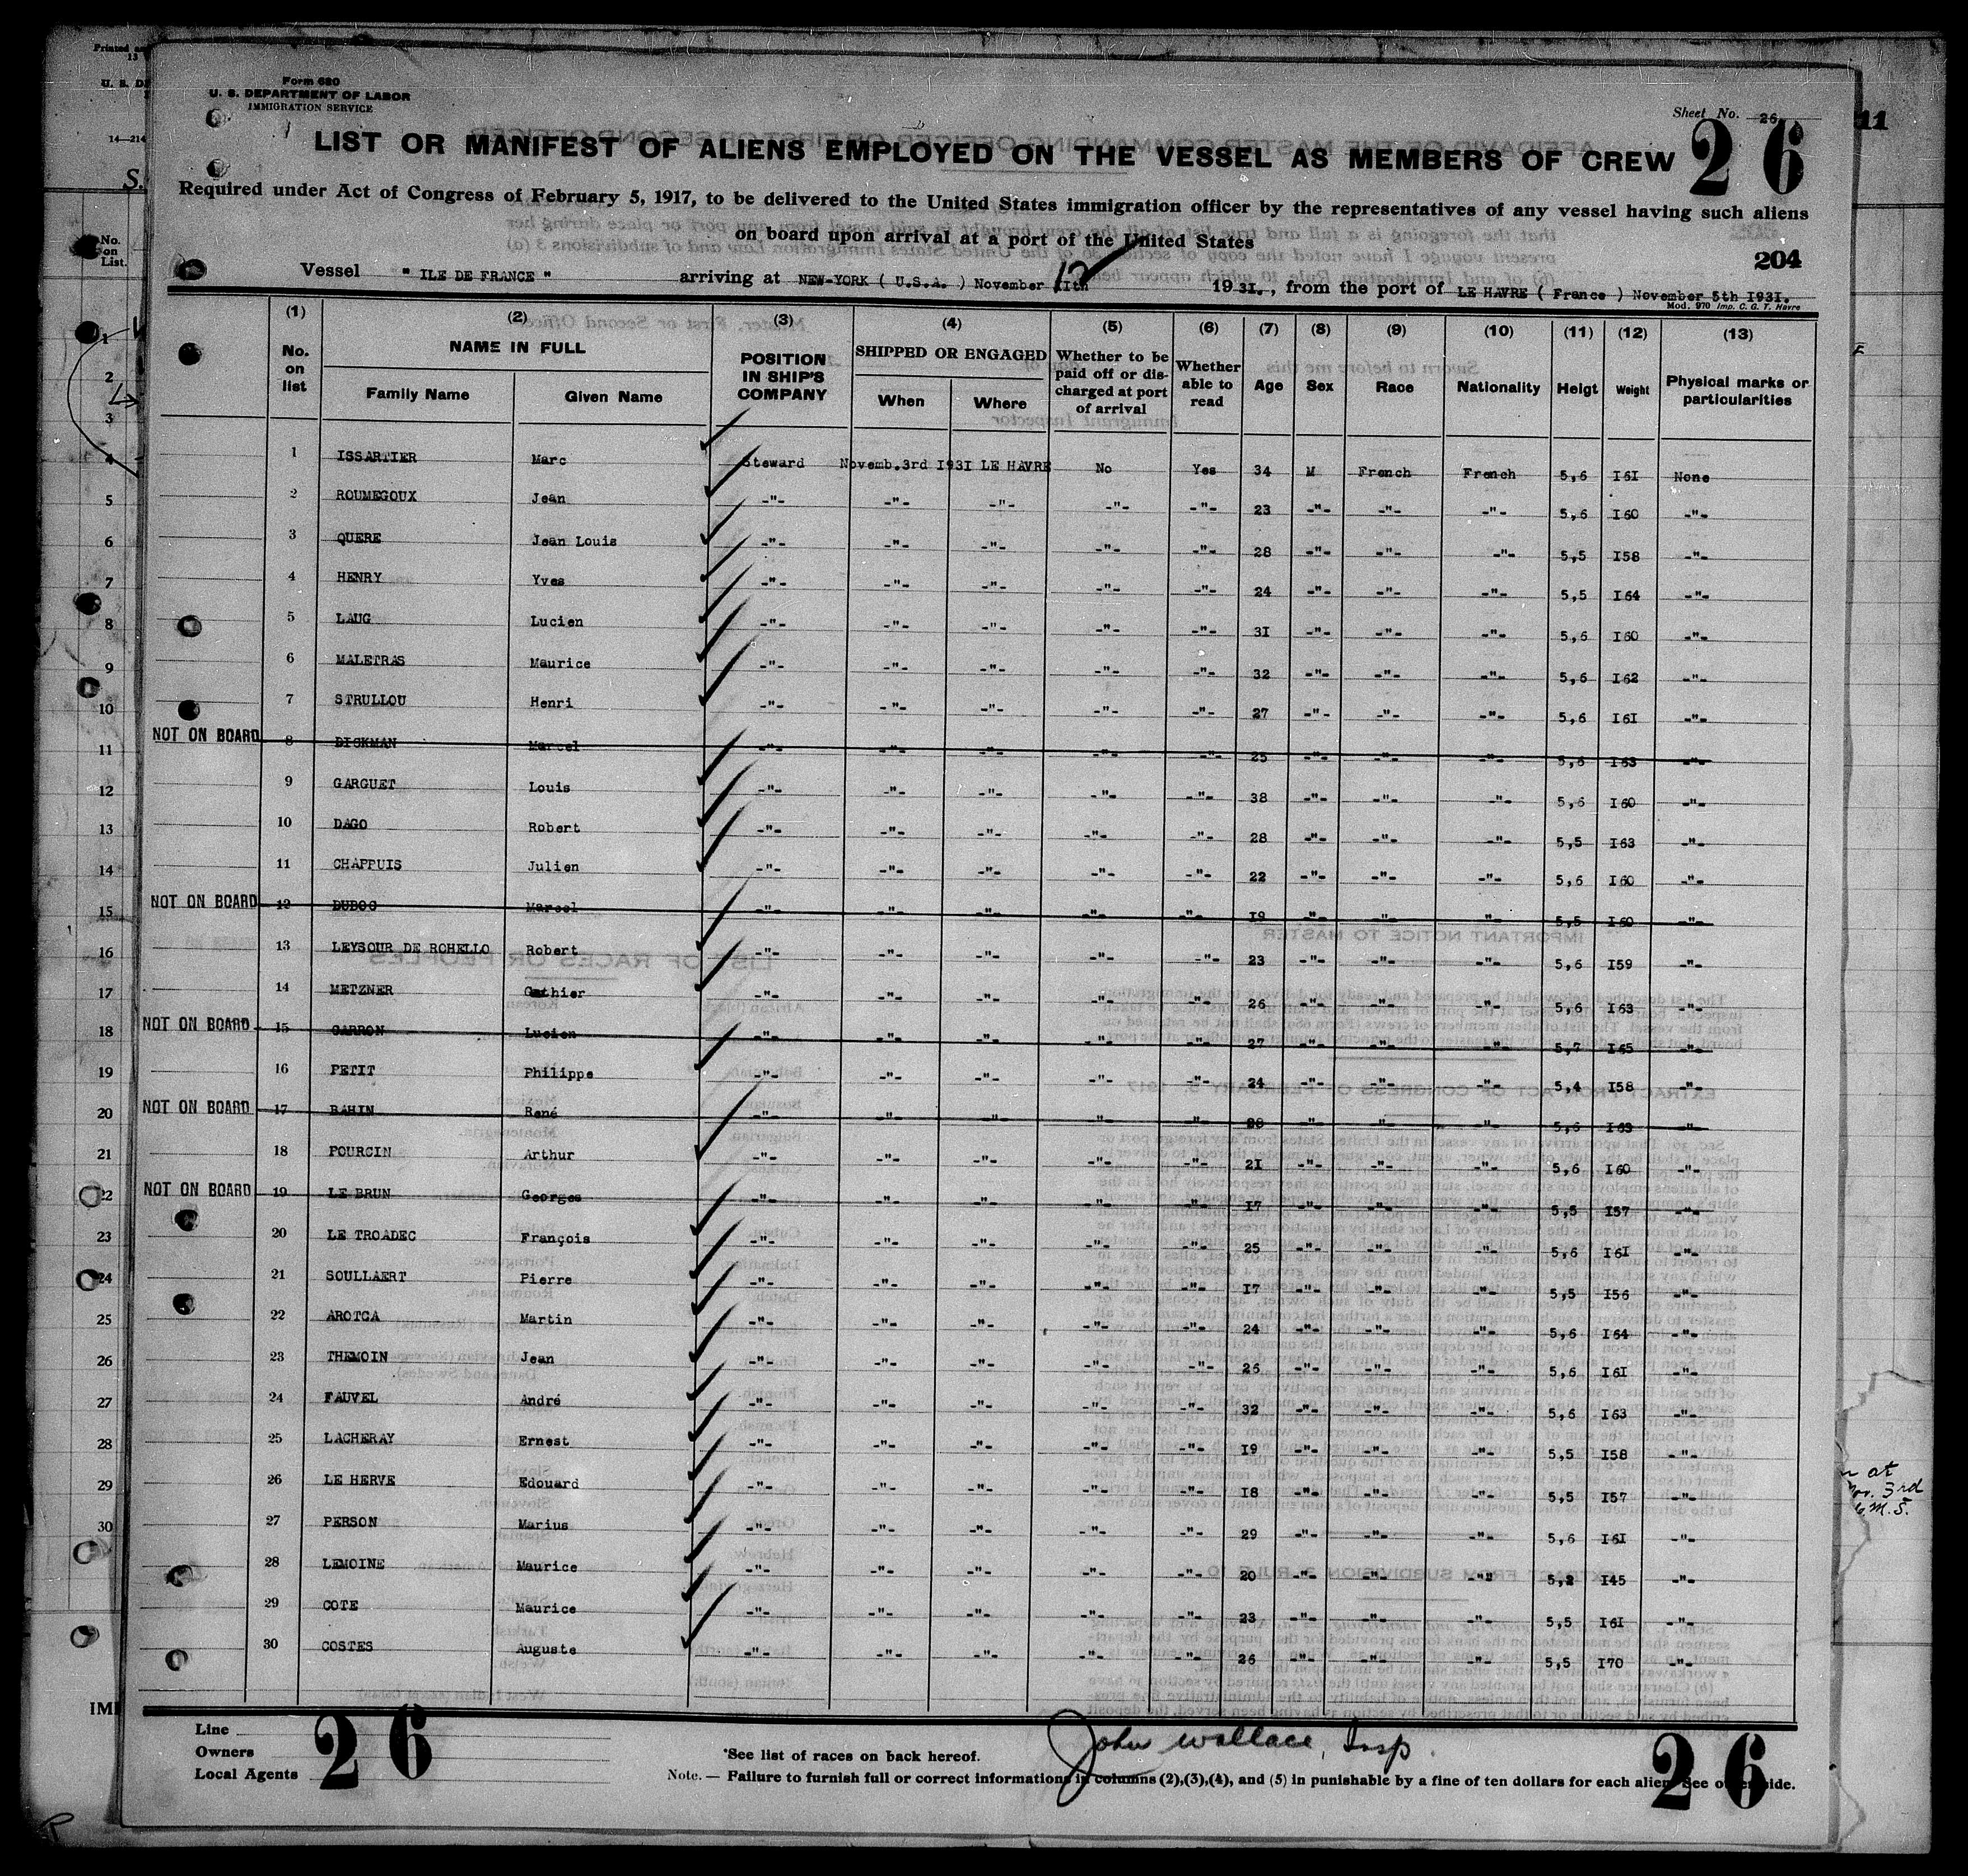 Form 680
U. S. DEPARTMENT OF LABOR
IMMIGRATION SERVICE
Sheet No. 26
26
LIST OR MANIFEST OF ALIENS EMPLOYED ON THE VESSEL AS MEMBERS OF CREW
Required under Act of Congress of February 5, 1917, to be delivered to the United States immigration officer by the representatives of any vessel having such aliens
on board upon arrival at a port of the United States
204
Vessel " ILE DE FRANCE " arriving at NEW-YORK ( U.S.A. ) November 11th 12 1931., from the port of LE HAVRE ( France ) November 5th I93I.
Mod. 970 Imp. C. G. T. Havre
(1) (2) (3) (4) (5) (6) (7) (8) (9) (10) (11) (12) (13)
No. on list NAME IN FULL Family Name Given Name POSITION IN SHIP'S COMPANY SHIPPED OR ENGAGED When Where Whether to be paid off or discharged at port of arrival Whether able to read Age Sex Race Nationality Heigt Weight Physical marks or particularities
1 ISSARTIER Marc Steward Novemb.3rd I93I LE HAVRE No Yes 34 M French French 5,6 I6I None
2 ROUMEGOUX Jean -"- -"- -"- -"- -"- 23 -"- -"- -"- 5,6 I60 -"-
3 QUERE Jean Louis -"- -"- -"- -"- -"- 28 -"- -"- -"- 5,5 I58 -"-
4 HENRY Yves -"- -"- -"- -"- -"- 24 -"- -"- -"- 5,5 I64 -"-
5 LAUG Lucien -"- -"- -"- -"- -"- 3I -"- -"- -"- 5,6 I60 -"-
6 MALETRAS Maurice -"- -"- -"- -"- -"- 32 -"- -"- -"- 5,6 I62 -"-
7 STRULLOU Henri -"- -"- -"- -"- -"- 27 -"- -"- -"- 5,6 I6I -"-
NOT ON BOARD 8 DICKMAN Marcel -"- -"- -"- -"- -"- 25 -"- -"- -"- 5,6 I63 -"-
9 GARGUET Louis -"- -"- -"- -"- -"- 38 -"- -"- -"- 5,6 I60 -"-
10 DAGO Robert -"- -"- -"- -"- -"- 28 -"- -"- -"- 5,5 I63 -"-
11 CHAPPUIS Julien -"- -"- -"- -"- -"- 22 -"- -"- -"- 5,6 I60 -"-
NOT ON BOARD 12 DUBOC Marcel -"- -"- -"- -"- -"- I9 -"- -"- -"- 5,5 I60 -"-
13 LEYSOUR DE ROHELLO Robert -"- -"- -"- -"- -"- 23 -"- -"- -"- 5,6 I59 -"-
14 METZNER Gathier -"- -"- -"- -"- -"- 26 -"- -"- -"- 5,6 I63 -"-
NOT ON BOARD 15 CARRON Lucien -"- -"- -"- -"- -"- 27 -"- -"- -"- 5,7 I65 -"-
16 PETIT Philippe -"- -"- -"- -"- -"- 24 -"- -"- -"- 5,4 I58 -"-
NOT ON BOARD 17 BAHIN René -"- -"- -"- -"- -"- 28 -"- -"- -"- 5,6 I63 -"-
18 POURCIN Arthur -"- -"- -"- -"- -"- 2I -"- -"- -"- 5,6 I60 -"-
NOT ON BOARD 19 LE BRUN Georges -"- -"- -"- -"- -"- I7 -"- -"- -"- 5,5 I57 -"-
20 LE TROADEC François -"- -"- -"- -"- -"- 25 -"- -"- -"- 5,6 I6I -"-
21 SOULLAERT Pierre -"- -"- -"- -"- -"- I7 -"- -"- -"- 5,5 I56 -"-
22 AROTCA Martin -"- -"- -"- -"- -"- 24 -"- -"- -"- 5,6 I64 -"-
23 THEMOIN Jean -"- -"- -"- -"- -"- 26 -"- -"- -"- 5,6 I6I -"-
24 FAUVEL André -"- -"- -"- -"- -"- 32 -"- -"- -"- 5,6 I63 -"-
25 LACHERAY Ernest -"- -"- -"- -"- -"- I9 -"- -"- -"- 5,5 I58 -"-
26 LE HERVE Edouard -"- -"- -"- -"- -"- I8 -"- -"- -"- 5,5 I57 -"-
27 PERSON Marius -"- -"- -"- -"- -"- 29 -"- -"- -"- 5,6 I6I -"-
28 LEMOINE Maurice -"- -"- -"- -"- -"- 20 -"- -"- -"- 5,2 I45 -"-
29 COTE Maurice -"- -"- -"- -"- -"- 23 -"- -"- -"- 5,5 I6I -"-
30 COSTES Auguste -"- -"- -"- -"- -"- 26 -"- -"- -"- 5,5 I70 -"-
Line
Owners
Local Agents
26
*See list of races on back hereof.
John Wallace, Insp.
Note. — Failure to furnish full or correct informations in columns (2),(3),(4), and (5) in punishable by a fine of ten dollars for each alien. See other side.
26